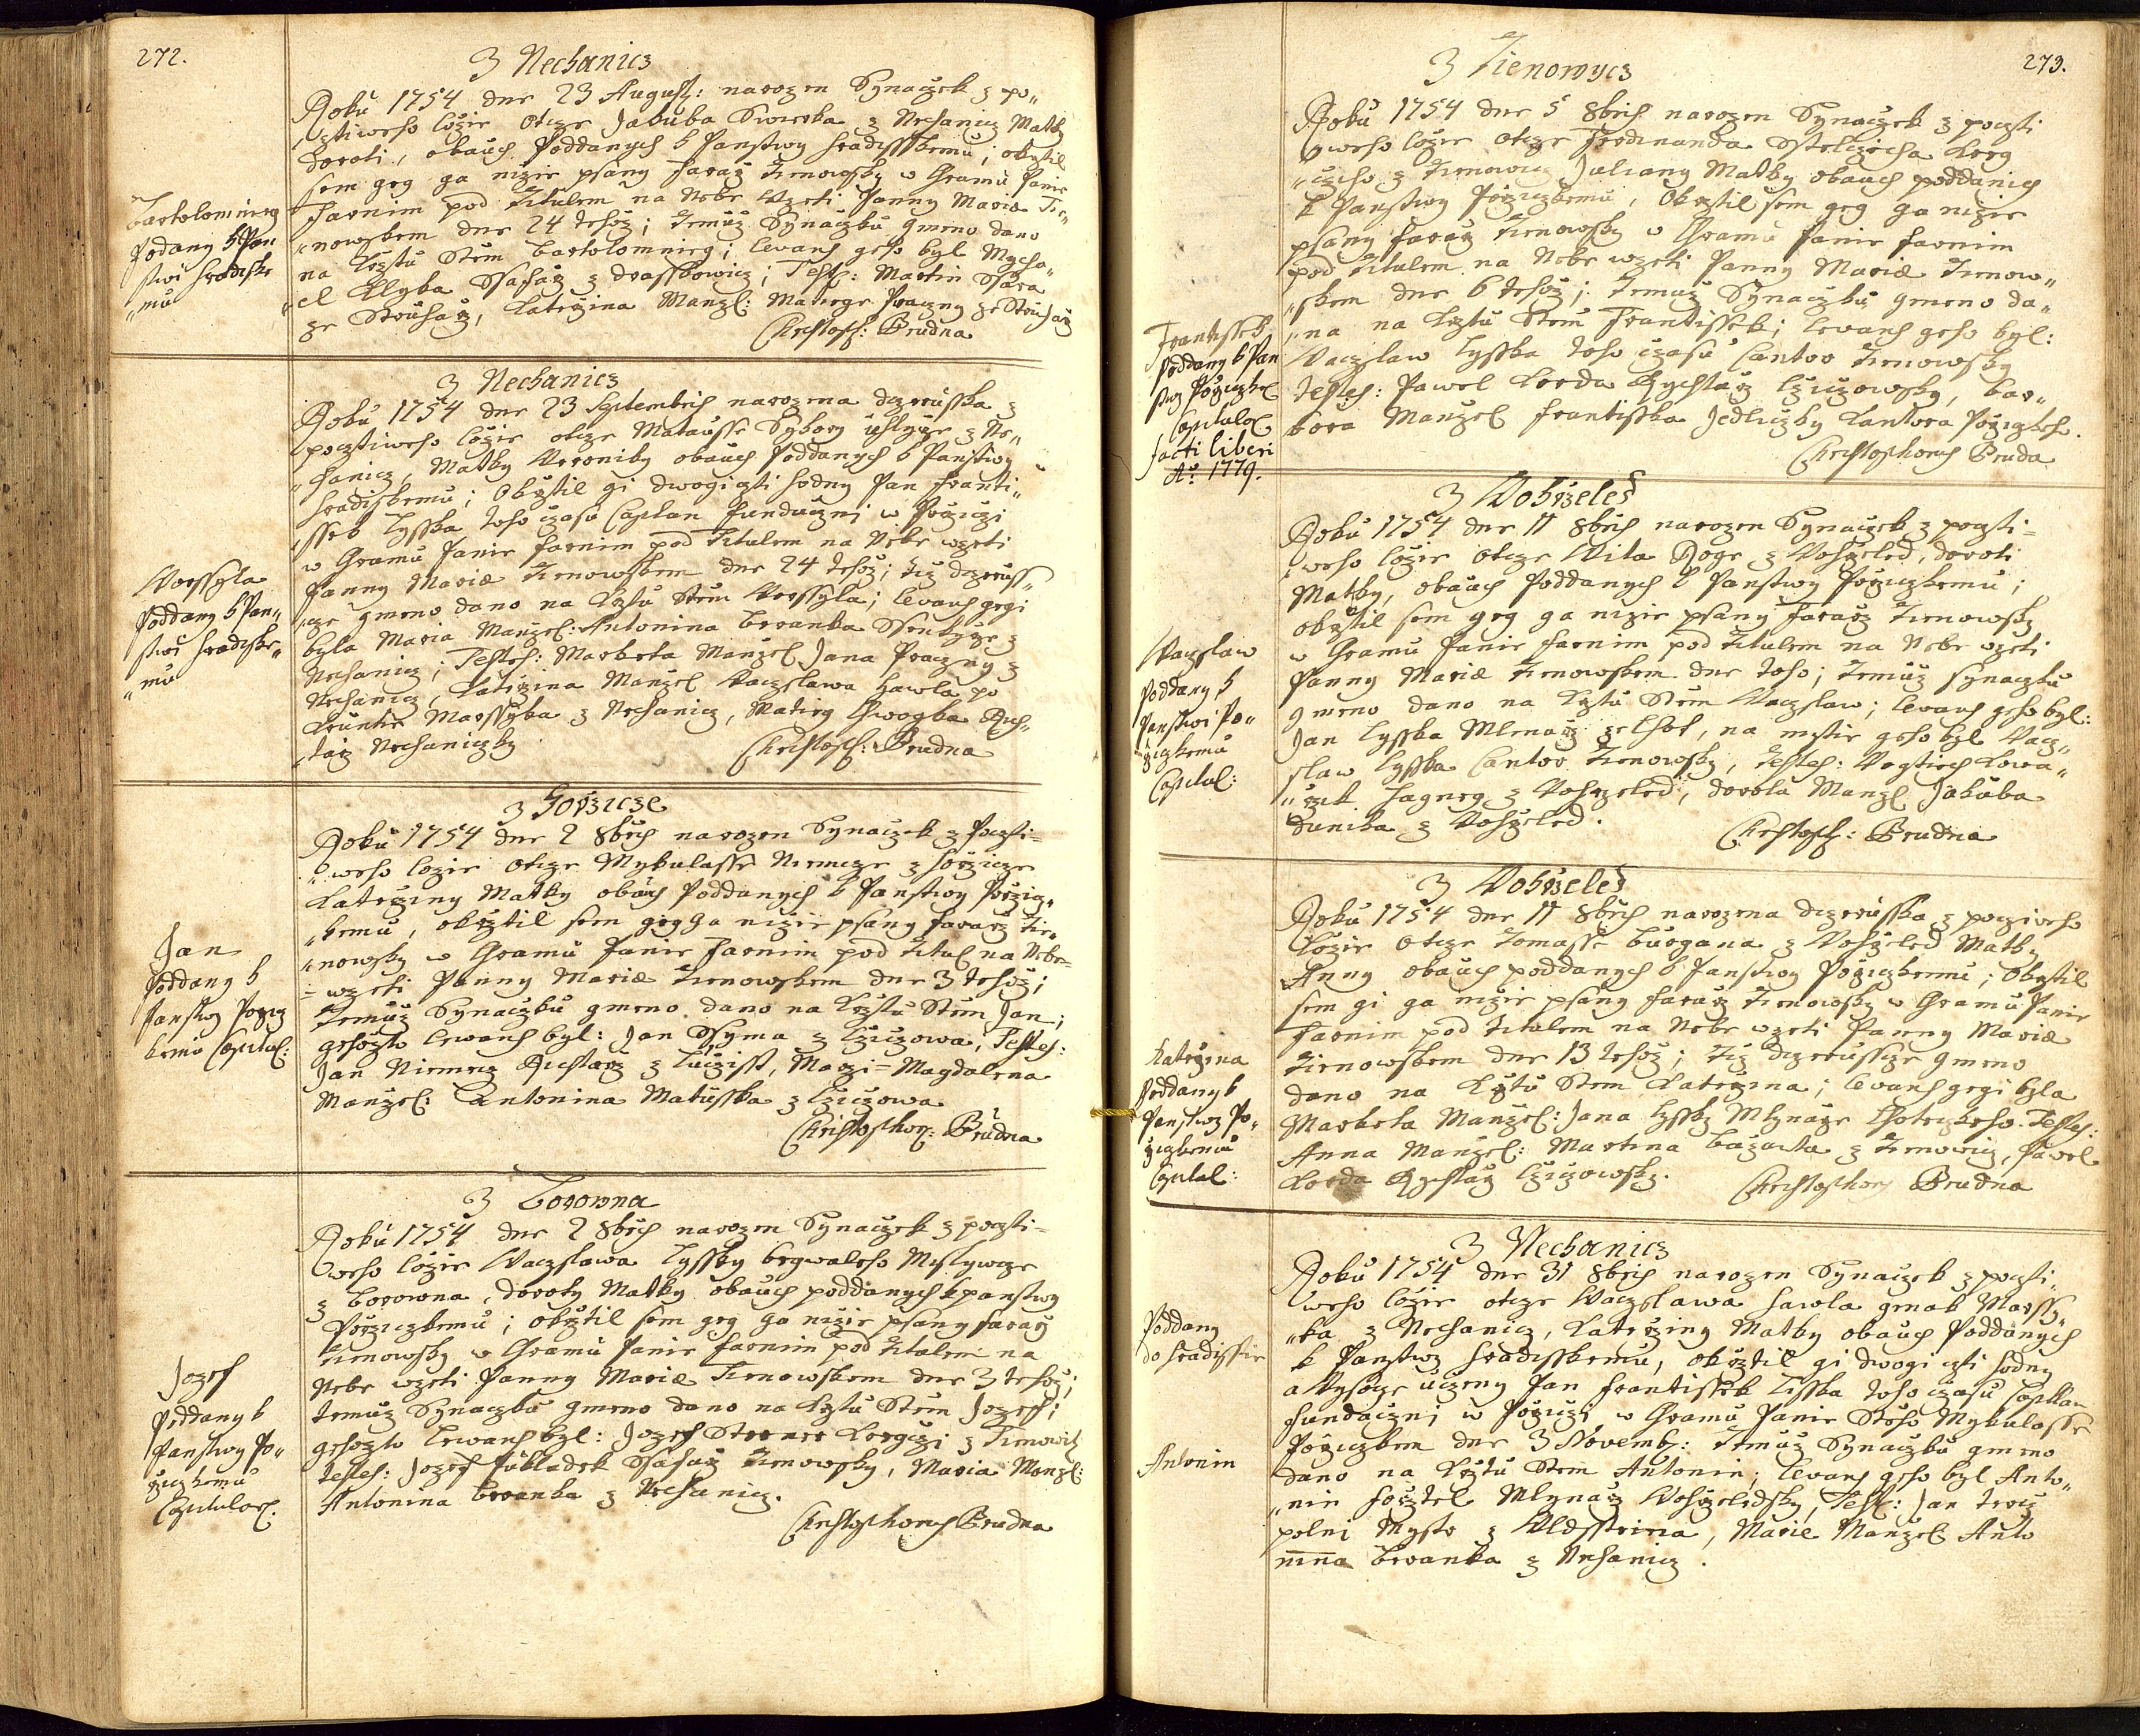 272.
Z Nechanicz
Roku 1754 dne 23 August: narozen Synaczek z po„
cztiweho Ložie Otcze Jakuba Swierka z Nechanicz Matky
Doroti, obauch Poddanych k Panstwy Hradisskemu; okrztil
sem geg ga nizie psany Faraž Tienowsky w Chramu Panie
Farnim pod Titulem na Nebe Wzeti Panny Mariæ Tie„
„nowskem dne 24 tehož; Temuž Synaczku gmeno dano
na Krztu Stem Bartolomnieg; Levans geho byl Mycha„
„el Klyka Ssafaž z Drasskowicz; Test: Martin Ssara
ze Stuhaž, Katežina Manzl: Matiege Praczny ze Stuhaž
Christoph: Brudna
Bartolomnieg
Podany k Pan
stwi Hradisske
„mu
Z Nechanicz
Roku 1754 dne 23 Septembris narozena dczeruska z
pocztiweho ložie otcze Matausse Sykory z Ne„
„chanicz, Matky Veroniky obauch Poddanych k Panstwy
Hradiskemu; Okrztil gi dwogi czti hodny Pan Franti„
ssek Lysska toho czasu Caplan Fundaczni w Požiczi
w Chramu Panie Farnim pod Titulem na Nebe wzeti
Panny Mariæ Tienowskem dne 24 tehož; Tiž dczerus„
„cze gmeno dano na Krztu Stem Worssyla; Levans gegi
byla Maria Manžel: Antonina Beranka Ssenkyže z
Nechanicz; Testes: Marketa Manžel Jana Praczny z
Nechanicz, Katežina Manžel Waczslawa Hawla po
Gruntie Marssyka z Nechanicz, Matieg Chwogka Rich„
„taž Nechaniczky
Christoph: Brudna
Worssyla
Poddany k Pan„
stwi Hradiske„
„mu
Z Horžicze
Roku 1754 dne 2 8bris narozen Synaczek z Poczti=
„weho lozie otcze Mykulasse Niemcze z Horžicze
Katerziny Matky obauch Poddanych k Panstwy Požicz„
„kemu, okrztil sem geg ga nizie psany Faraž Tie„
„nowsky w Chramu Panie Farnim pod Titul na Nebe=
=wzeti Panny Mariæ Tienowskem dne 3 tehož;
Temuž Synaczku gmeno dano na Krztu Stem Jan;
gehožto Lewans byl: Jan Ssyma z Cziczowa, Testes:
Jan Niemecz Richtarž z Luczist, Marži=Magdalena
Manžel: Antonina Matusska z Cziczowa
Christophor: Brudna
Jan
Poddany k
Panstwy Požicz
kemu Capitul:
Z Borowna
Roku 1754 dne 2 8bris narozen Synaczek z poczti=
weho ložie Waczslawa Lyssky begwaleho Myslywcze
z Borowna, Doroty Matky obauch poddanych k panstwy
Požiczkemu; okrztil sem geg ga nizie psany Faraž
Tienowsky w Chramu Panie Farnim pod Titulem na
Nebe wzeti Panny Mariæ Tienowskem dne 3 tehož;
temuž Synaczku gmeno dano na Krztu Stem Jozef;
gehožto Lewans byl: Jozef Kregczi z Tienowicz
Testes: Jozef Pukladek Ssafaž Tienowsky, Maria Manžl:
Antonina Beranka z Nechanicz.
Christophorus Brudna
Jozef
Poddany k
Panstwy Po„
žiczkemu
Capitular.
273.
Z Tienowycz
Roku 1754 dne 5 8bris narozen Synaczek z poczti
weho ložie otcze Ferdinanda Kreg
„cziho z Tienowicz Juliany Matky obauch poddanich
k Panstwy Požiczkemu, Okrztil sem geg ga nizie
psany Faraž Tienowsky w Chramu Panie Farnim
pod Titulem na Nebe wzeti Panny Mariæ Tienow„
„skem dne 6 tehož; Temuž Synaczku gmeno da„
„no na Krztu Stem Frantissek; Levans geho byl:
Waczslaw Lysska toho czasu Cantor Tienowsky
Testes: Pawel Korda Rychtaž Cziczowsky, Bar„
bora Manžel Frantisska Jedliczky Kantora Požiczkeho.
Christophorus Bruda
Frantissek
Poddany k Pan
stwy Požiczkem
Capitular
facti liberi
Ao. 1779.
Z Wohrzeled
Roku 1754 dne 11 8bris narozen Synaczek z poczti=
weho ložie otcze Wita z Wohrzeled, Doroti
Matky, obauch Poddanych k Panstwy Požiczkemu;
okrztil sem geg ga nizie psany Faraž Tienowsky
w Chramu Panie Farnim pod Titulem na Nebe wzeti
Panny Mariæ Tienowskem dne toho; Temuž synaczku
gmeno dano na Krztu Stem Waczslaw; Levans geho byl:
Jan Lysska Mlenarž ze Lhot, na mistie geho byl Wacz„
slaw Lysska Cantor Tienowsky, Testes: Wogtiech Kowa„
„rzik Hagneg z Wohrzeled, Dorota Manžl Jakuba
Dunika z Wohrzeled.
Christoph: Brudna
Waczslaw
Poddany k
Panstwi Po„
žiczkemu
Capitul:
Z Wohrzeled
Roku 1754 dne 11 8bris narozena dczeruska z pocziweho
Ložie otcze Tomasse Burgana z Wohrzeled Matky
Anny obauch poddanych k Panstwy Požiczkemu; Okrztil
sem gi ga nizie psany Fararz Tienowsky w Chramu Panie
Farnim pod Titulem na Nebe wzeti Panny Mariæ
Tienowskem dne 13 tehož; Tiž dczerussce gmeno
dano na Krztu Stem Katerzina; Levans gegi byla
Markета Manžel: Jana Lyssky Mlynaže Lhoteczkeho. Testes:
Anna Manžel: Martina Bažanta z Tienowicz, Pavel
Korda Rychtaž Cziczowsky.
Christophorus Brudna
Katežina
Poddany k
Panstwy Po„
žiczkemu
Capital:
Z Nechanicz
Roku 1754 dne 31 8bris narozen Synaczek z poczti„
weho ložie otcze Waczslawa Hawla ginak Marssy„
„ka z Nechanicz, Kateržiny Matky obauch Poddanych
k Panstwy Hradisskemu, okrztil gi dwogi czti hodny
a Wysoce uczeny Pan Frantissek Lisska toho czasu Capllan
Fundaczni w Požiczi w Chramu Panie Steho Mykulasse
Požiczkem dne 3 Novemb: Temuž Synaczku gmeno
dano na Krztu Stem Antonin; Levans geho byl Anto„
„nin Horžtel Mlynarž Wohrzeledsky, Test: Jan
polni Mystr z Wldssteina, Marie Manžel Anto
nina Beranka z Nechanicz.
Poddany
do Hradisstie
Antonin